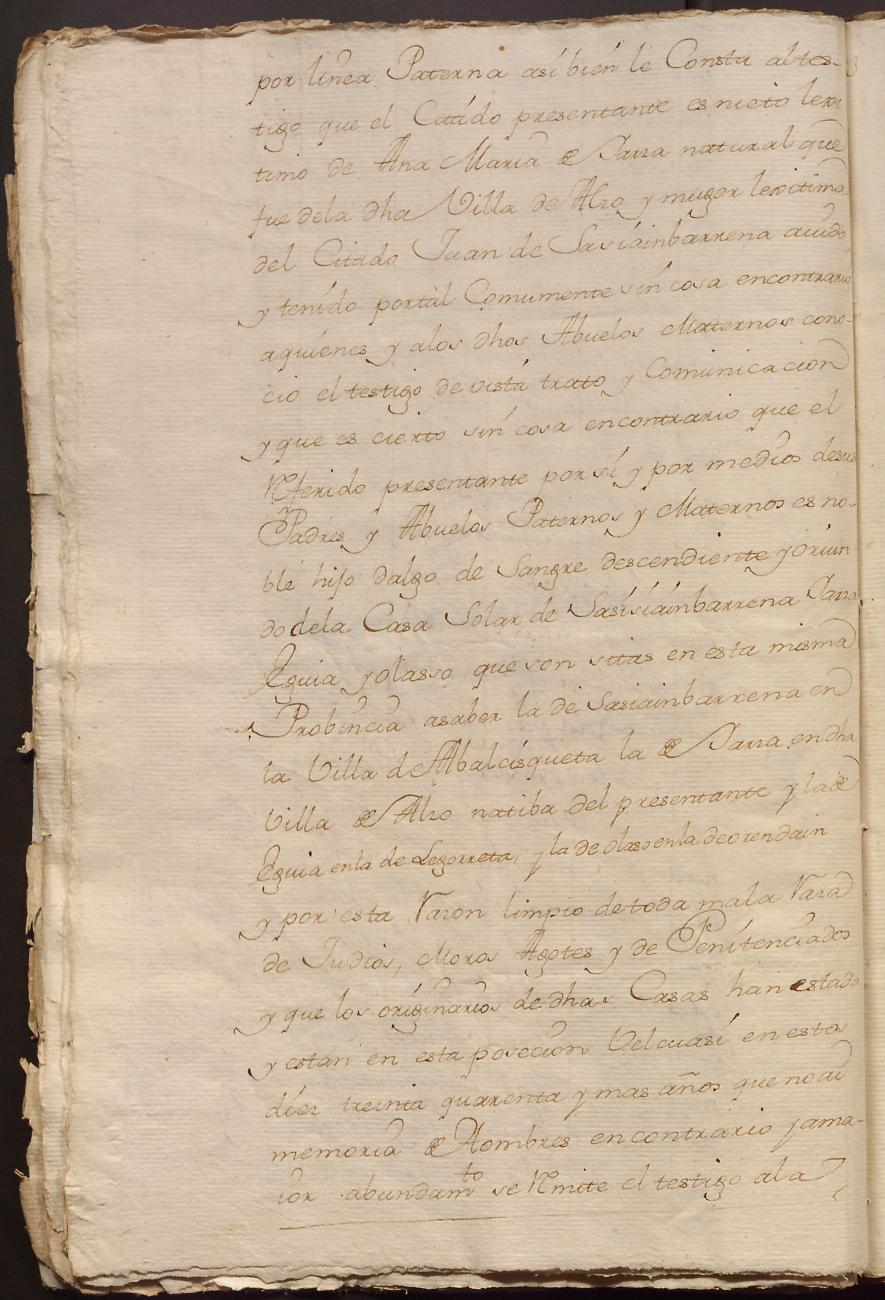 por linea Paterna así bien le Consta al tes-
tigo que el Citádo presentante es nieto lexi
timo de Ana Maria de Jarza natural que
fue dela dha Villa de Alzo y muger lexitima
del Citado Juan de Sasiainbarrena auido
y tenído portàl Comumente sin cosa encontrario
aquienes y alos dhos Abuelos Maternos cono-
cio el testigo de vista trato y Comunicacion
y que es cierto sin cosa encontrario que el
Referido presentante por sí y por medios de sus
Padres y Abuelos Paternos y Maternos es no-
ble hijo dalgo de Sangre descendiente y oriun-
do dela Casa Solar de Sasisiainbarrena Jarza
Eguia y olasso que son sitas en esta misma
Probincia asaber la de Sasiainbarrena en
la Villa d Abalcisqueta la de Jarza en dha
Villa de Alzo natiba del presentante y la de
Eguia enla de Legorreta, y la de olaso enla de orendain
y por esta Razon limpio de toda mala Raza
de Judios, Moros Agotes y de Penitenciados
y que los originarios de dhas Casas han estado
y estan en esta posecion Velcuasí en estos
díez treinta quarenta y mas años que no ai
memoria de Hombres encontrario y ama-
ior abundamto se Remite el testigo ala